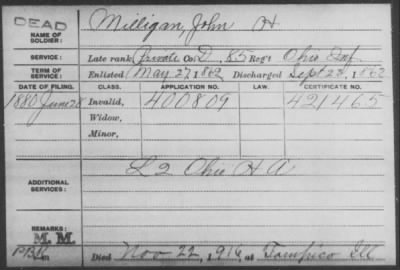 DEAD
NAME OF SOLDIER: Milligan, John H
SERVICE: Late rank Private Co. D, 85 Reg't Ohio Inf
TERM OF SERVICE: Enlisted May 27, 1862 Discharged Sept 23, 1862
DATE OF FILING. CLASS. APPLICATION NO. LAW. CERTIFICATE NO.
1880 June 28 Invalid, 400809 421465
Widow,
Minor,
ADDITIONAL SERVICES: L 2 Ohio H A
REMARKS:
M. M.
Died Nov 22, 1916, at Tampico Ill